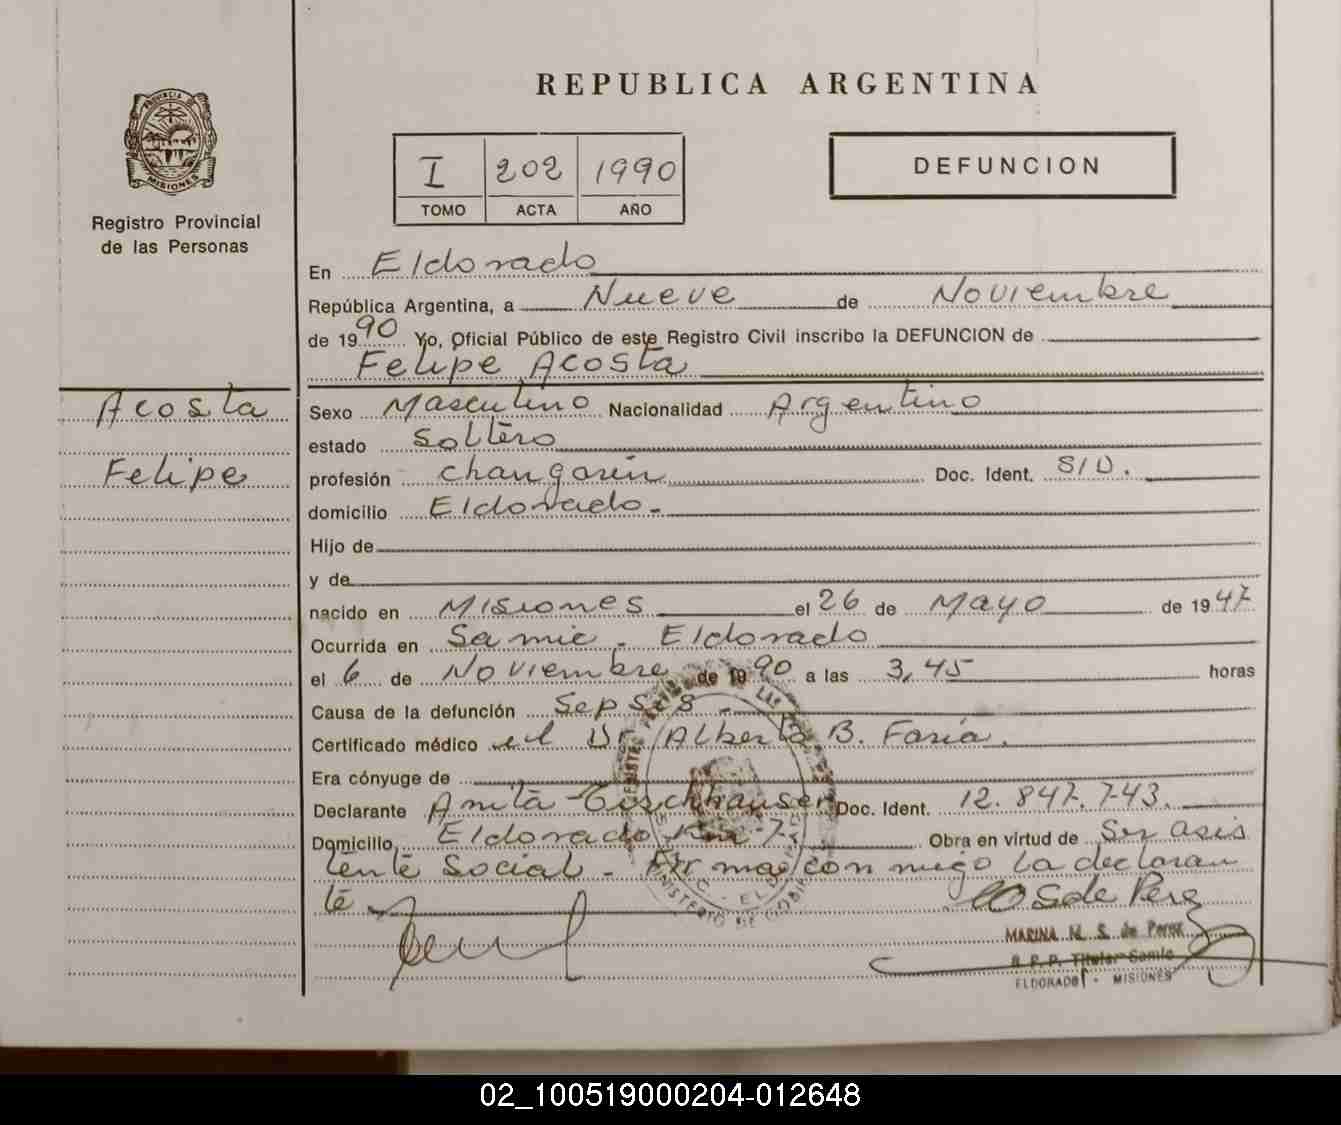 REPUBLICA ARGENTINA
PROVINCIA DE
MISIONES
Registro Provincial
de las Personas
I 202 1990
TOMO ACTA AÑO
DEFUNCION
En Eldorado
República Argentina, a Nueve de Noviembre
de 1990 Yo, Oficial Público de este Registro Civil inscribo la DEFUNCION de
Felipe Acosta
Acosta
Felipe
Sexo Masculino Nacionalidad Argentino
estado Soltero
profesión changarin Doc. Ident. S/D.
domicilio Eldorado.
Hijo de
y de
nacido en Misiones el 26 de Mayo de 1947
Ocurrida en Samic. Eldorado
el 6 de Noviembre de 1990 a las 3,45 horas
Causa de la defunción Sepsis
Certificado médico el Dr. Alberto B. Faria.
Era cónyuge de
Declarante Anita Doc. Ident. 12.847.743.
Domicilio Eldorado Km 7 Obra en virtud de Ser asis
tente Social. Firma con migo la declaran
te
S de Perez
MARINA N. S. de Perez
R P.P. Titular Samic
ELDORADO - MISIONES
02_100519000204-012648